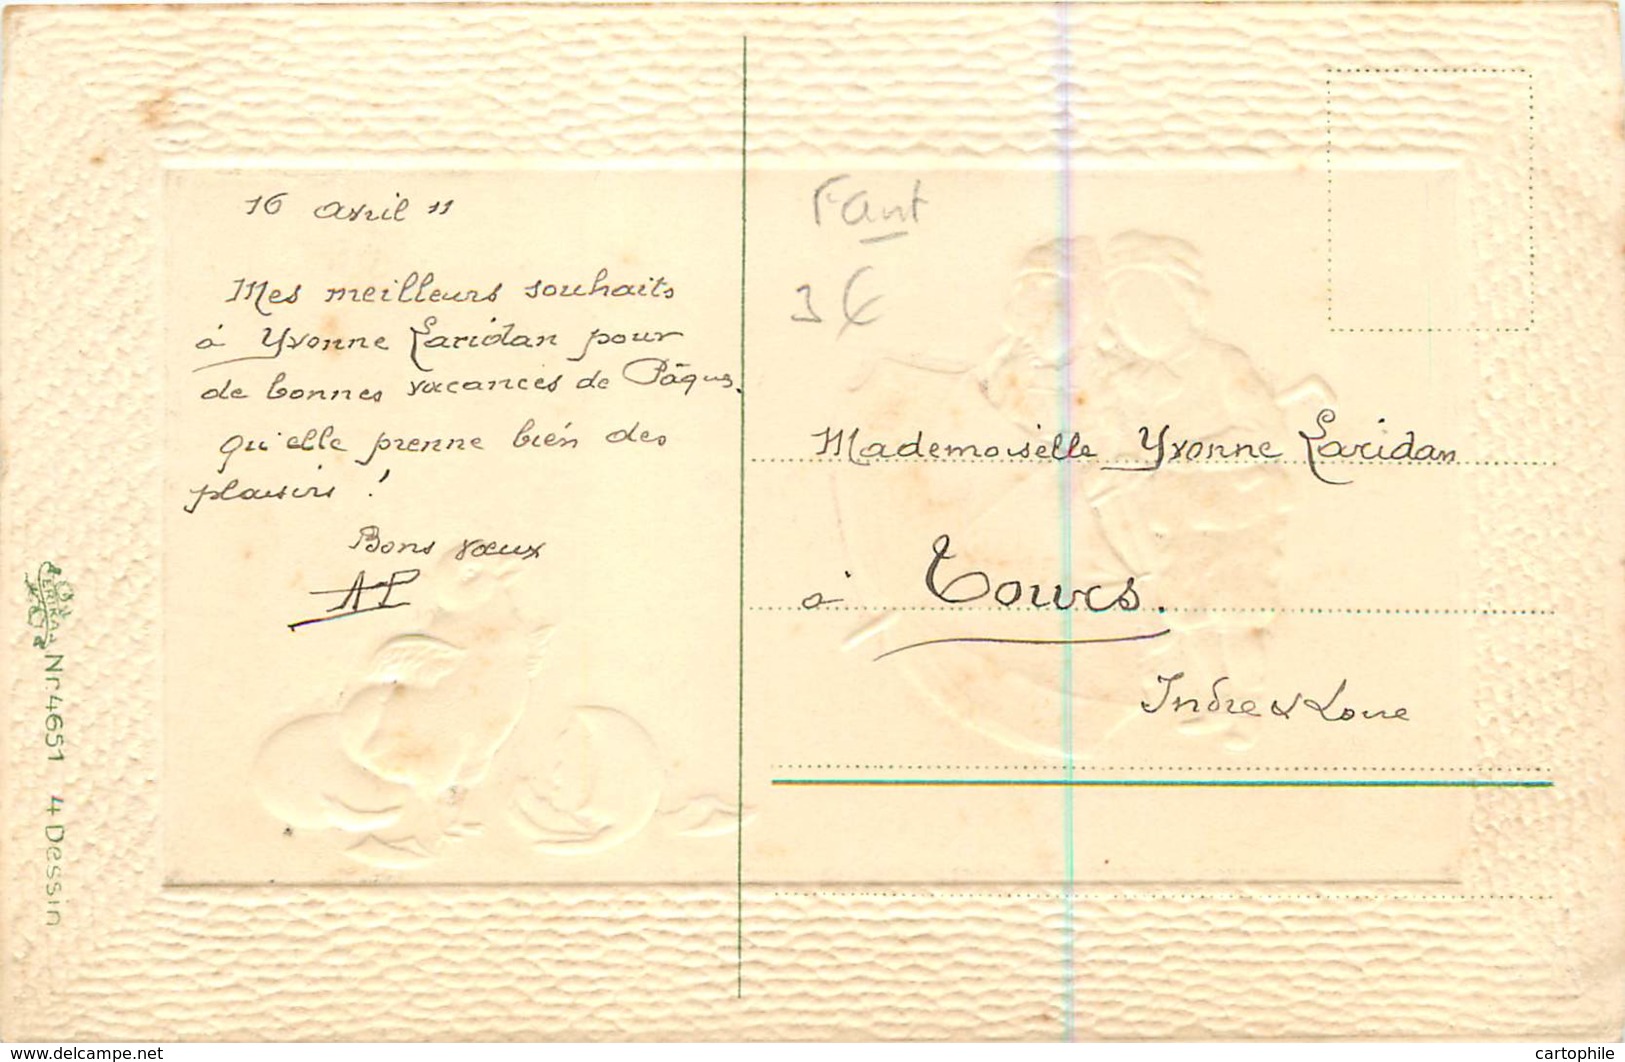 16 avril 11
Mes meilleurs souhaits
à Yvonne Laridan pour
de bonnes vacances de Pâques.
qu'elle prenne bien des
plaisirs !
Bons vœux
AP
ERIKA
Nr. 4651 4 Dessin
Fant
3€
Mademoiselle Yvonne Laridan
à Tours.
Indre & Loire
www.delcampe.net
cartophile